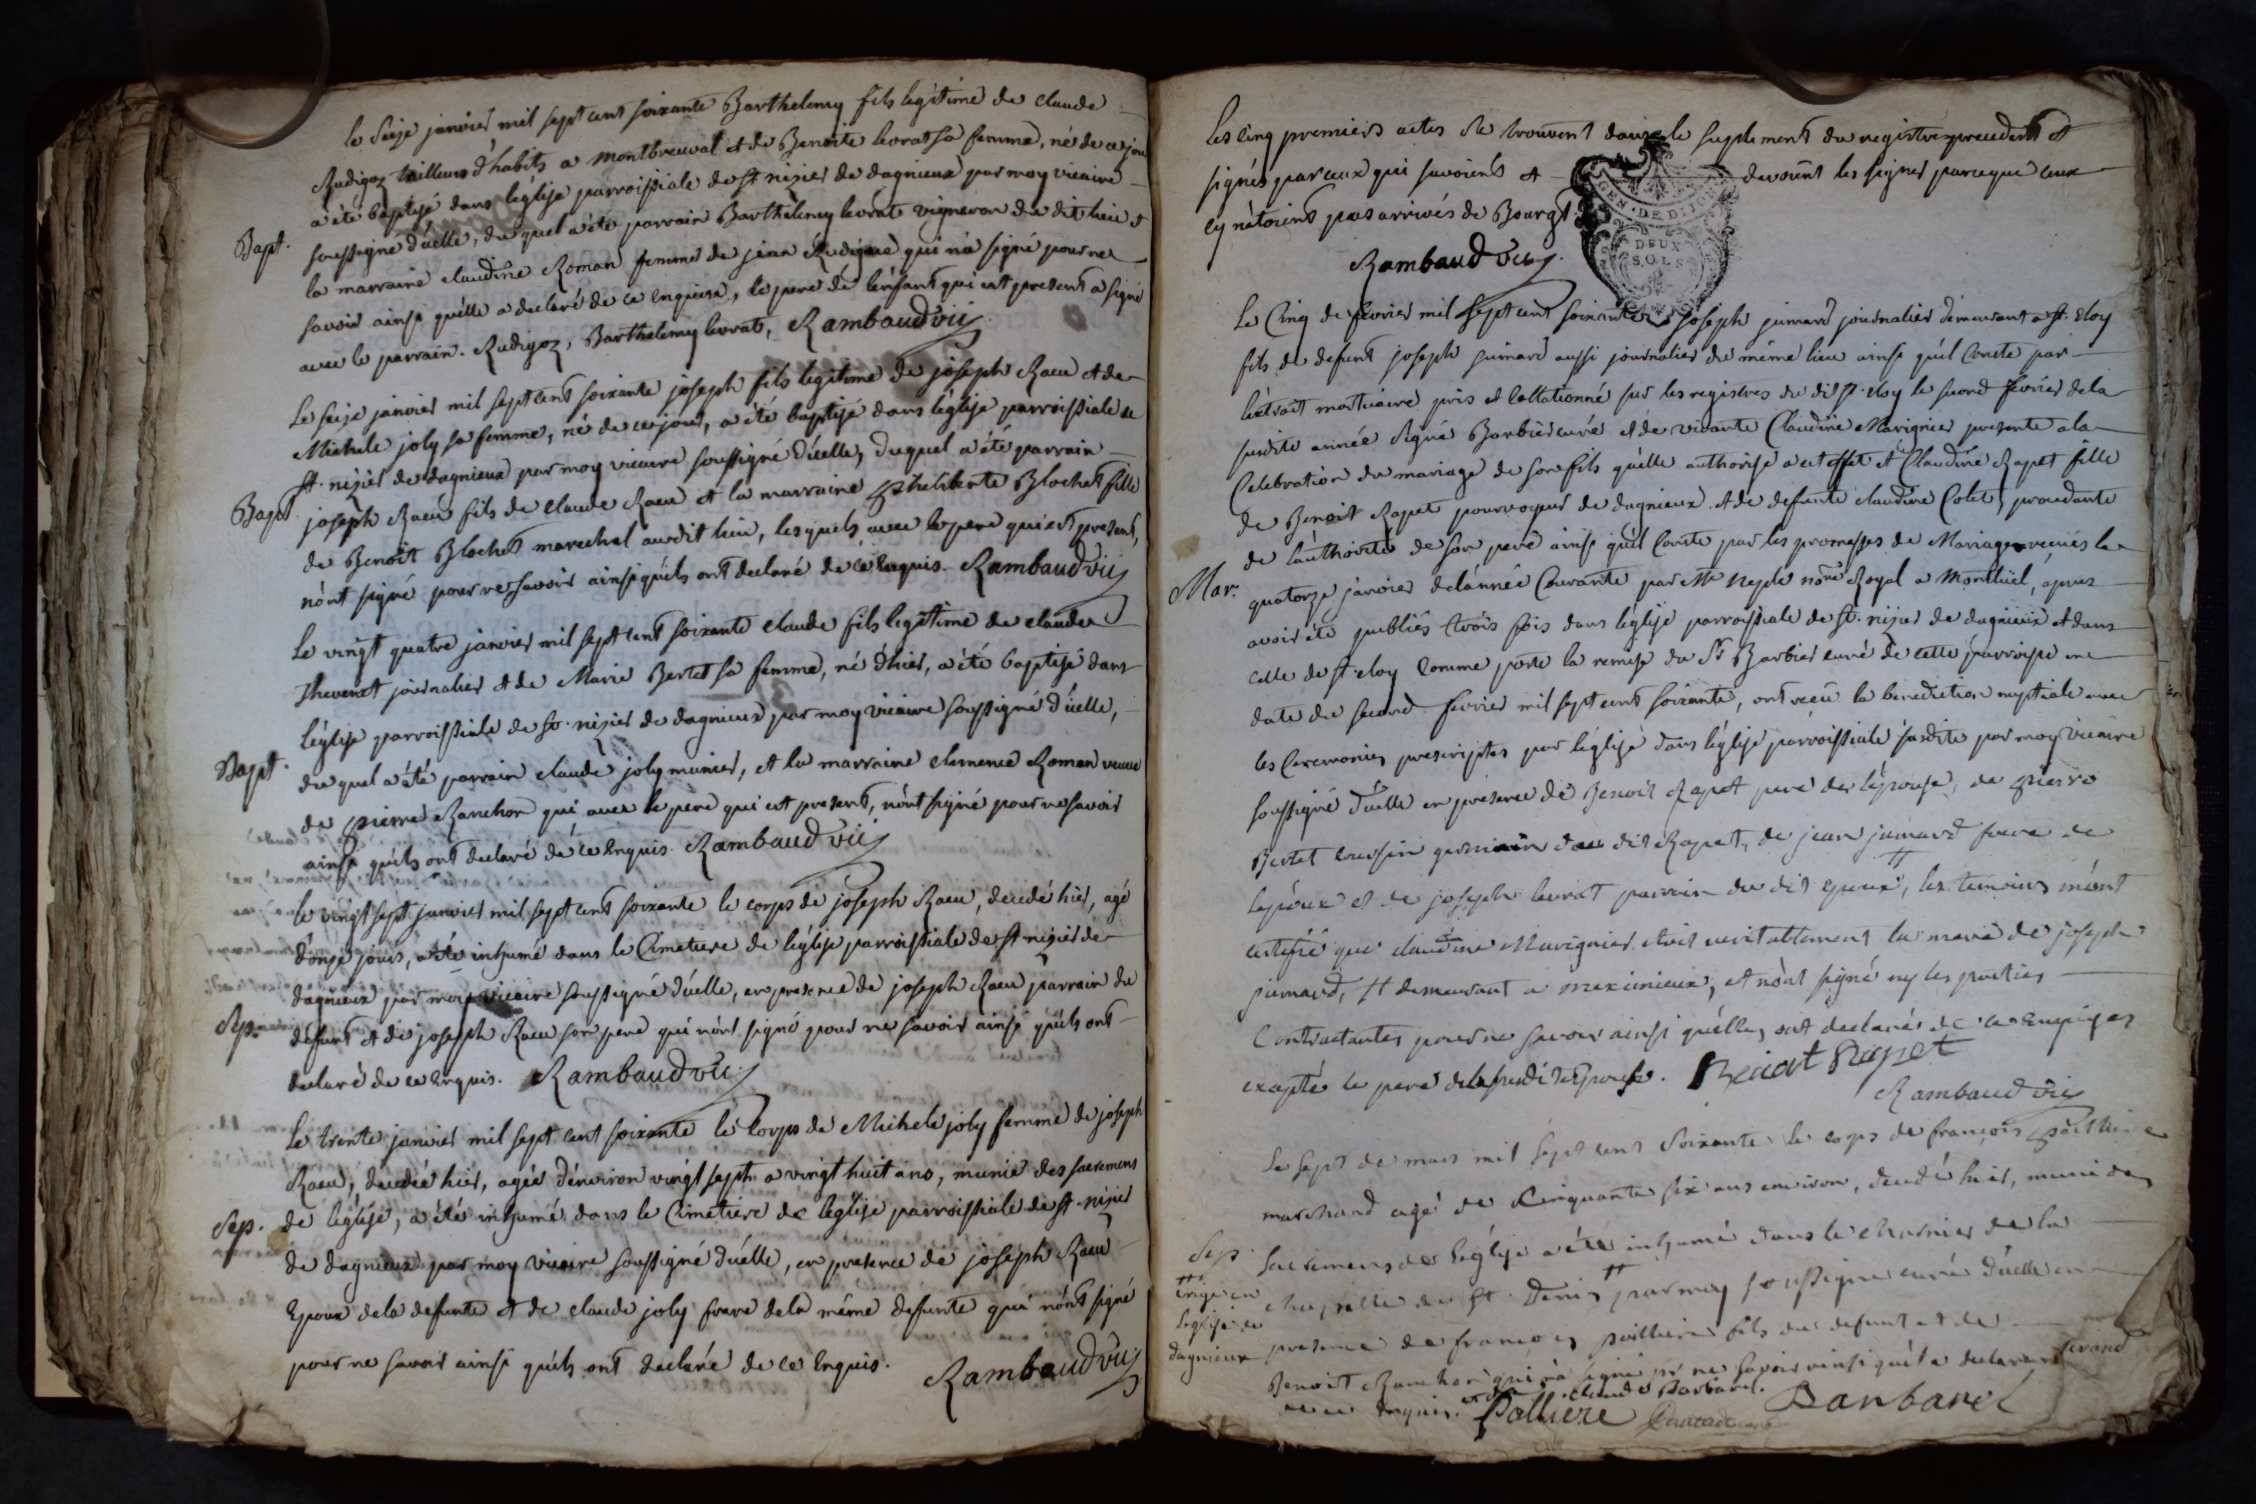 Le Seize janvier mil sept cent soixante Barthelemy fils legitime de claude
Rudigoz tailleur d'habits a montbreuval et de Benoite levrat sa femme, né de ce jour
a été baptisé dans l'église parroissiale de st nizier de dagnieux par moy vicaire
Bapt. soussigné d'icelle, du quel a été parrain Barthelemy levrat vigneron du dit lieu et
la marraine claudine Roman femme de jean Rudigoz qui n'a signé pour ne
savoir ainsi qu'elle a declaré de ce enquise, le pere de l'enfant qui est present a signé
avec le parrain. Rudigoz, Barthelemy levrat, Rambaud vic.
Le seize janvier mil sept cent soixante joseph fils legitime de joseph Raeu et de
Michele joly sa femme, né de ce jour, a été baptisé dans l'église parroissiale de
st. nizier de dagnieux par moy vicaire soussigné d'icelle, duquel a été parrain
Bapt. joseph Raeu fils de claude Raeu et la marraine philiberte Blochet fille
de Benoit Blochet marechal au dit lieu, lesquels avec le pere qui est present,
n'ont signé pour ne savoir ainsi qu'ils ont declaré de ce enquis. Rambaud vic
Le vingt quatre janvier mil sept cent soixante claude fils legitime de claude
Thevenet journalier et de Marie Bertet sa femme, né d'hier, a été baptisé dans
l'église parroissiale de st. nizier de dagnieux par moy vicaire soussigné d'icelle,
Bapt. du quel a été parrain claude joly munier, et la marraine clemence Roman veuve
de pierre Ranchon qui avec le pere qui est present, n'ont signé pour ne savoir
ainsi qu'ils ont declaré de ce enquis. Rambaud vic
Le vingt sept janvier mil sept cent soixante le corps de joseph Raeu, decedé hier, agé
d'onze jours, a été inhumé dans le Cimetiere de l'église parroissiale de st nizier de
dagnieux par moy vicaire soussigné d'icelle, en presence de joseph Raeu parrain du
Sep. defunt et de joseph Raeu son pere qui n'ont signé pour ne savoir ainsi qu'ils ont
declaré de ce enquis. Rambaud vic.
Le trente janvier mil sept cent soixante le corps de Michele joly femme de joseph
Raeu, decedée hier, agée d'environ vingt sept a vingt huit ans, munie des sacremens
Sep. de l'église, a été inhumé dans le Cimetiere de l'église parroissiale de st. nizier
de dagnieux par moy vicaire soussigné d'icelle, en presence de joseph Raeu
Epoux de la defunte et de claude joly frere de la même defunte qui n'ont signé
pour ne savoir ainsi qu'ils ont declaré de ce enquis. Rambaud vic
Les cinq premiers actes se trouvent dans le suplement du registre precedent et
signés par ceux qui savoient et devoint les signer parceque ceux
cy n'étoient pas arrivés de Bourg.
GEN. DE DIJON
DEUX
SOLS
Rambaud vic.
Le Cinq de fevrier mil sept cent soixante joseph jumard journalier demeurant a st. eloy
fils de defunt joseph jumard aussi journalier du même lieu ainsi qu'il Conste par
l'extrait mortuaire pris et collationné sur les registres du dit st. eloy le second fevrier de la
susdite année signé Barbier curé et de vivante Claudine Marignier presente a la
Celebration du mariage de son fils qu'elle authorise a cet effet et Claudine Rapet fille
de Benoit Rapet pourvoyeur de dagnieux et de defunte claudine Colet, procedante
de l'authorité de son pere ainsi qu'il Conste par les promesses de Mariage receües le
Mar. quatorze janvier de l'année Courante par Me nepte nore Royal a Montluel, apres
avoir été publiés trois fois dans l'église parroissiale de st. nizier de dagnieux et dans
celle de st eloy Comme porte la remise du Sr Barbier curé de cette parroisse en
date du second fevrier mil sept cent soixante, ont receu la benediction nuptiale avec
les Ceremonies prescriptes par l'église dans l'église parroissiale susdite par moy vicaire
soussigné d'icelle en presence de Benoit Rapet pere de l'épouse, de pierre
Bertet cousin germain du dit Rapet, de jean jumard frere de
l'epoux et de joseph levrat parrain du dit epoux, les temoins m'ont
certifié que claudine Marignier étoit veritablement la mere de joseph
jumard, # demeurant a meximieux, et n'ont signé ny les parties
Contractantes pour ne savoir ainsi qu'elles ont declarés de ce Enquises
excepté le pere de la susdite Epouse. Benoit Rapet
Rambaud vic
Le sept de mars mil sept cent soixante le corps de francois
marchand agé de Cinquante six ans environ, decedé hier, muni des
Sep. sacremens de l'église a été inhumé dans le charnier de la
# erigé en l'église de dagnieux
chapelle de st. Denis # par moy soussigné curé d'icelle en
presence de francois fils du defunt et de
Benoit Ranchon qui n'a signé pr ne savoir ainsi qu'il a declaré
de ce enquis. claude Barbarel.
Pallliere Banbarel